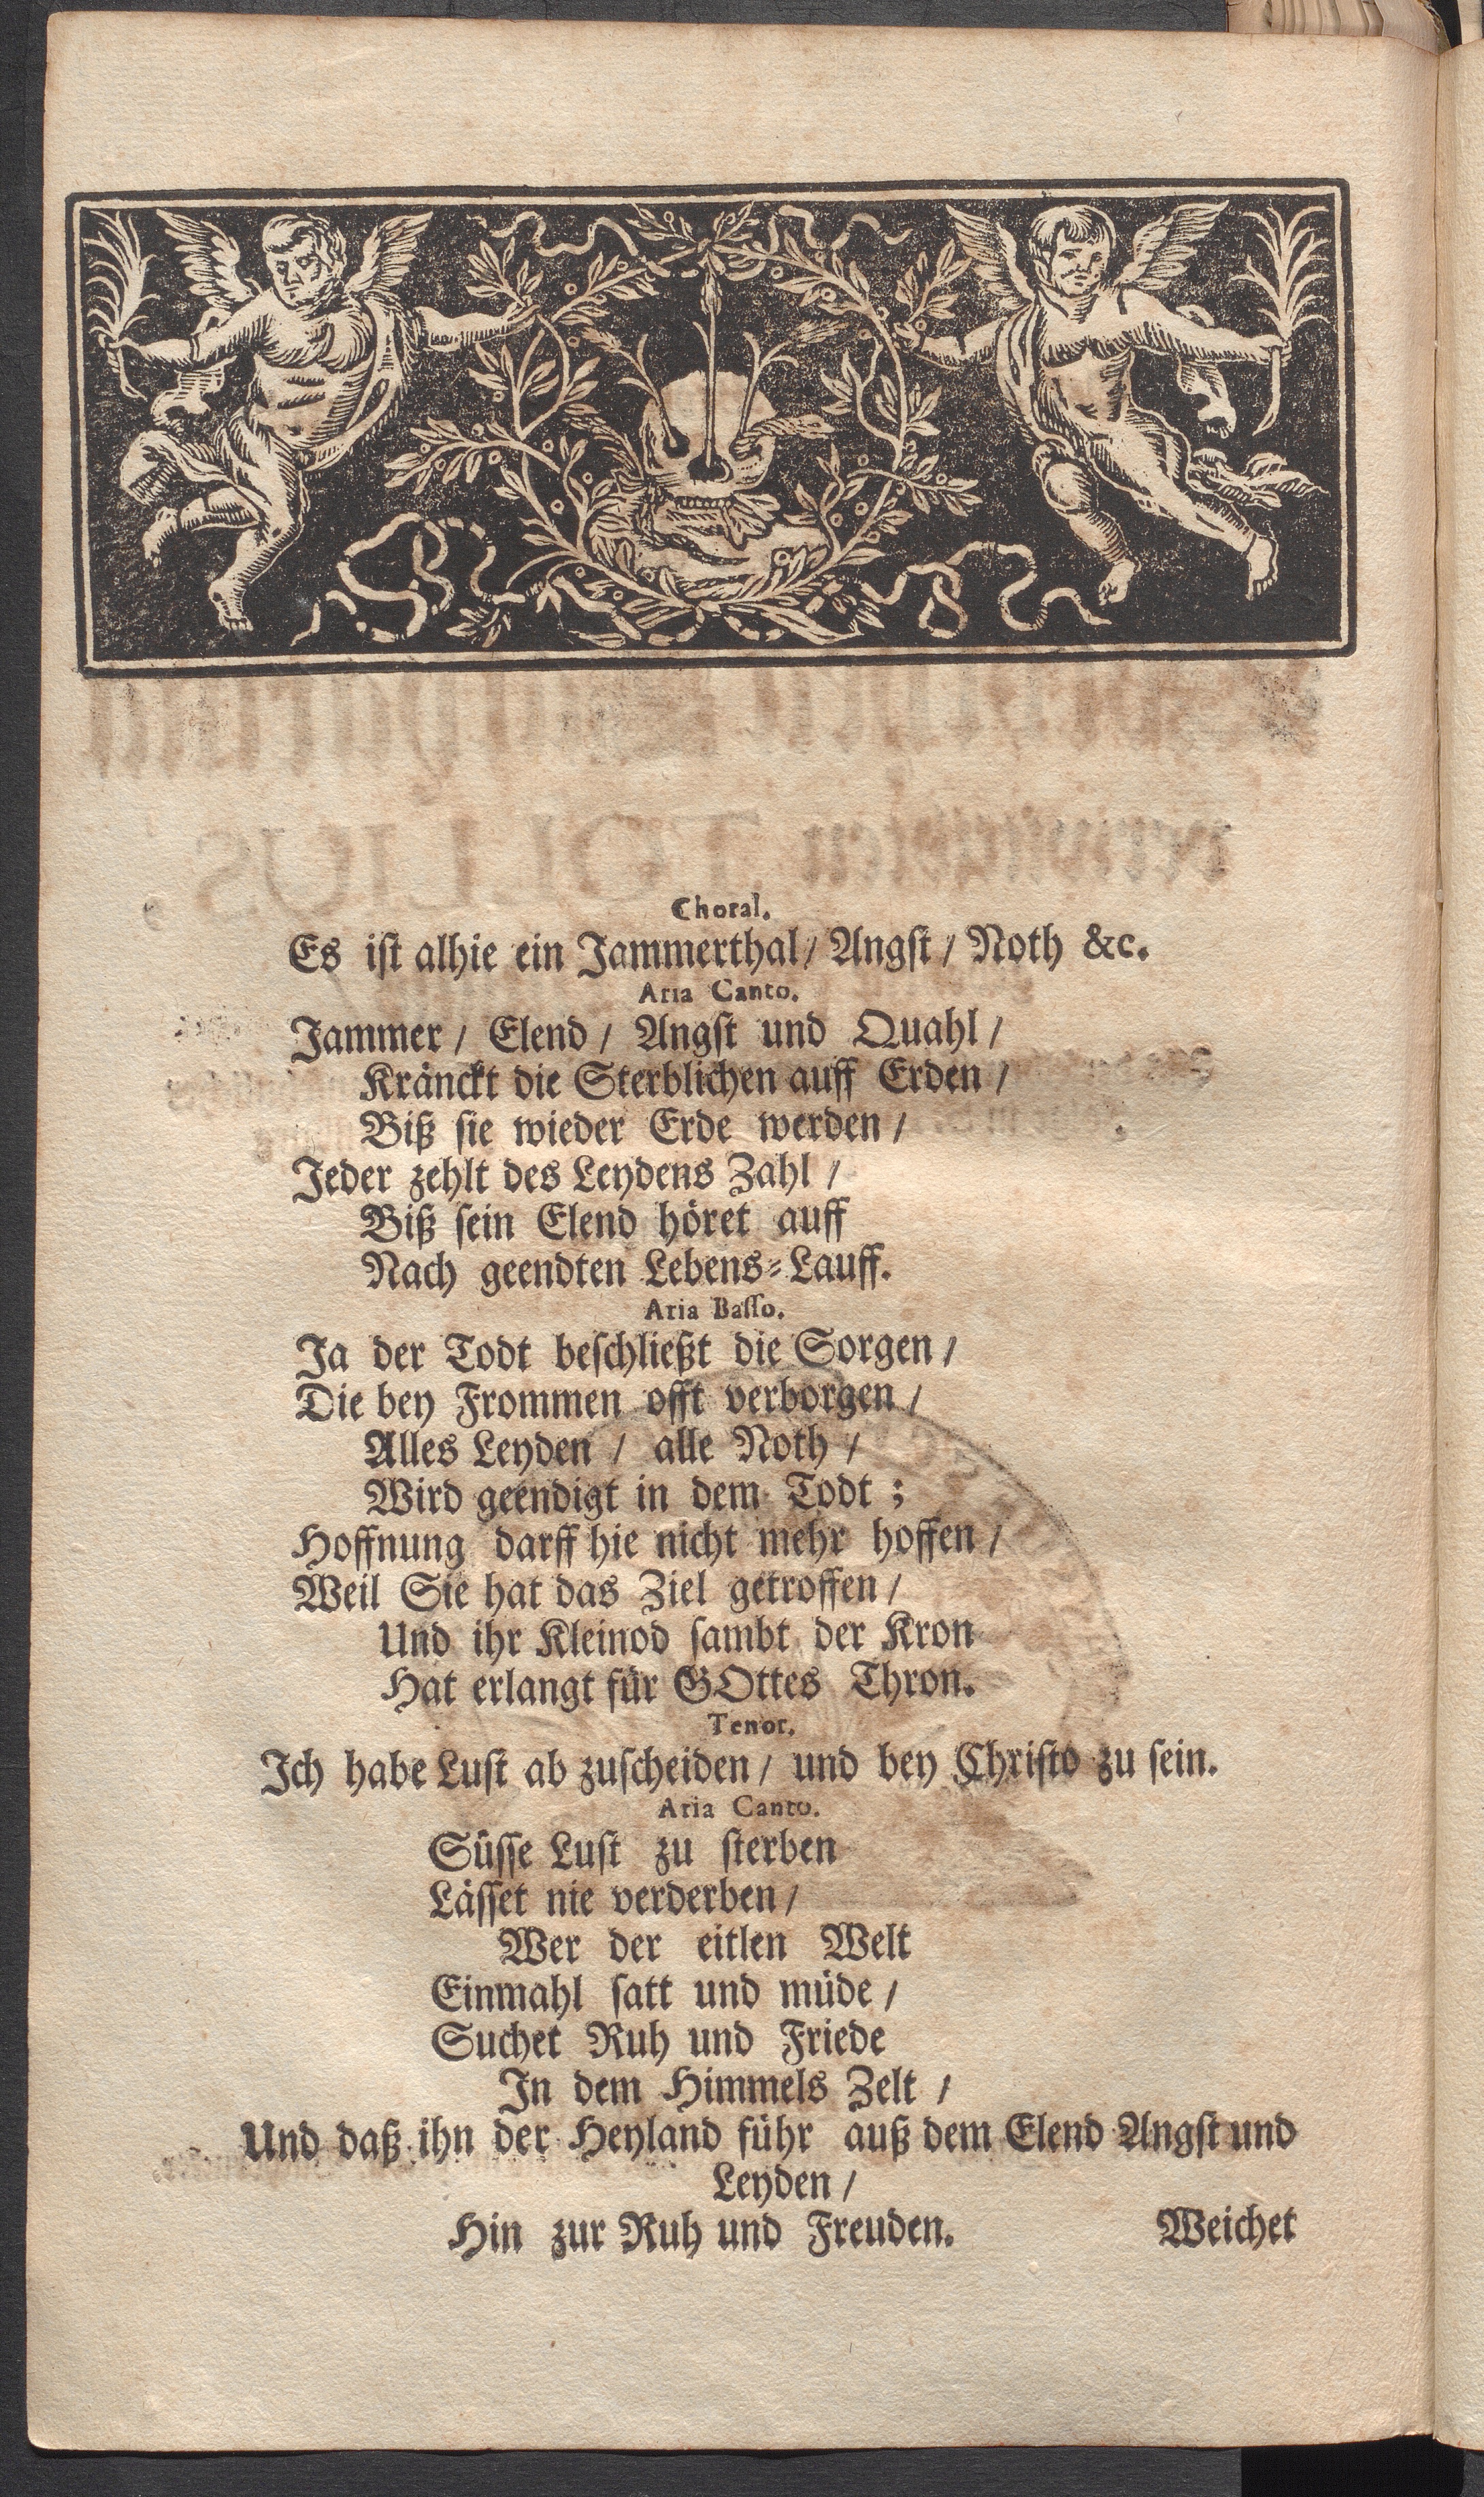 Choral.
Es ist alhie ein Jammerthal / Angst / Noth &c.
Aria Canto.
Jammer / Elend / Angst und Quahl /
Kränckt die Sterblichen auff Erden /
Biß sie wieder Erde werden /
Jeder zehlt des Leydens Zahl /
Biß sein Elend höret auff
Nach geendten Lebens-Lauff.
Aria Basso.
Ja der Todt beschließt die Sorgen /
Die bey Frommen offt verborgen /
Alles Leyden / alle Noth /
Wird geendigt in dem Todt ;
Hoffnung darff hie nicht mehr hoffen /
Weil Sie hat das Ziel getroffen /
Und ihr Kleinod sambt der Kron
Hat erlangt für GOttes Thron.
Tenor.
Ich habe Lust ab zuscheiden / und bey Christo zu sein.
Aria Canto.
Süsse Lust zu sterben
Lässet nie verderben /
Wer der eitlen Welt
Einmahl satt und müde /
Suchet Ruh und Friede
In dem Himmels Zelt /
Und daß ihn der Heyland führ auß dem Elend Angst und
Leyden /
Hin zur Ruh und Freuden.
Weichet